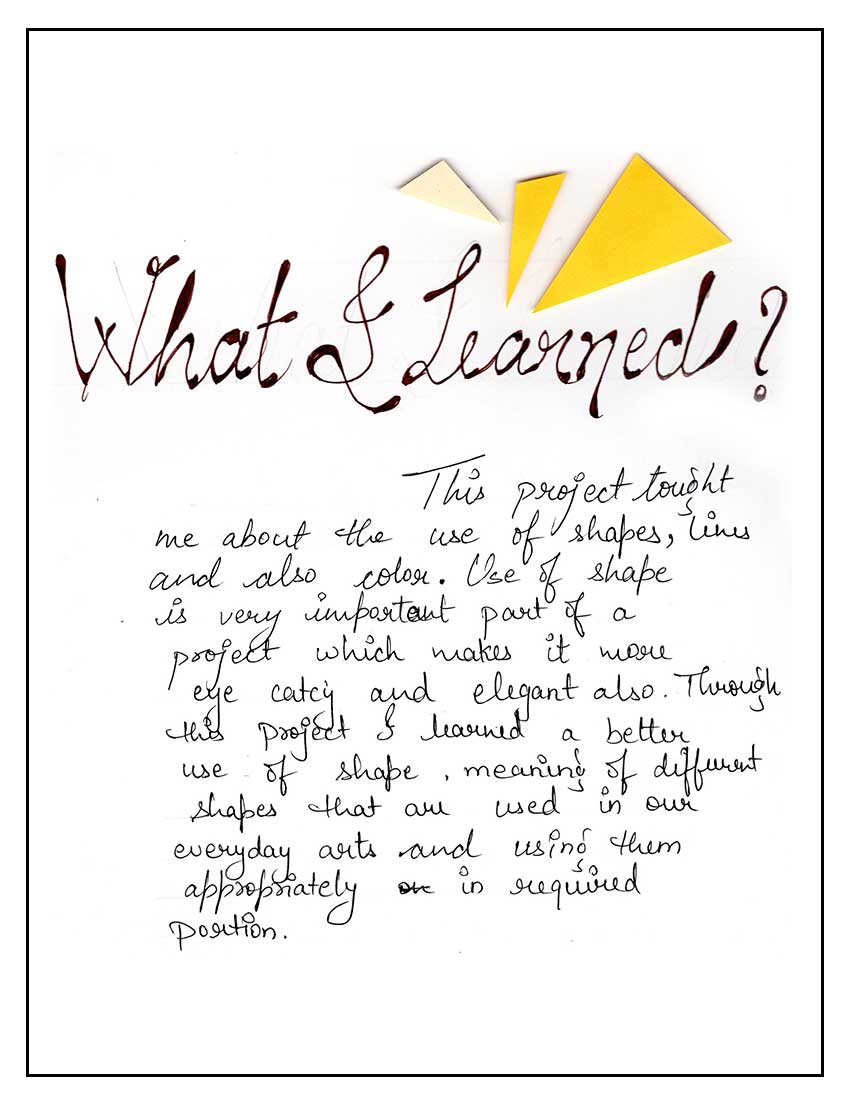 What I Learned?
This project tought
me about the use of shapes, lines
and also color. Use of shape
is very important part of a
project which makes it more
eye catcy and elegant also. Through
this project I learned a better
use of shape , meaning of different
shapes that are used in our
everyday arts and using them
appropriately in required
portion.